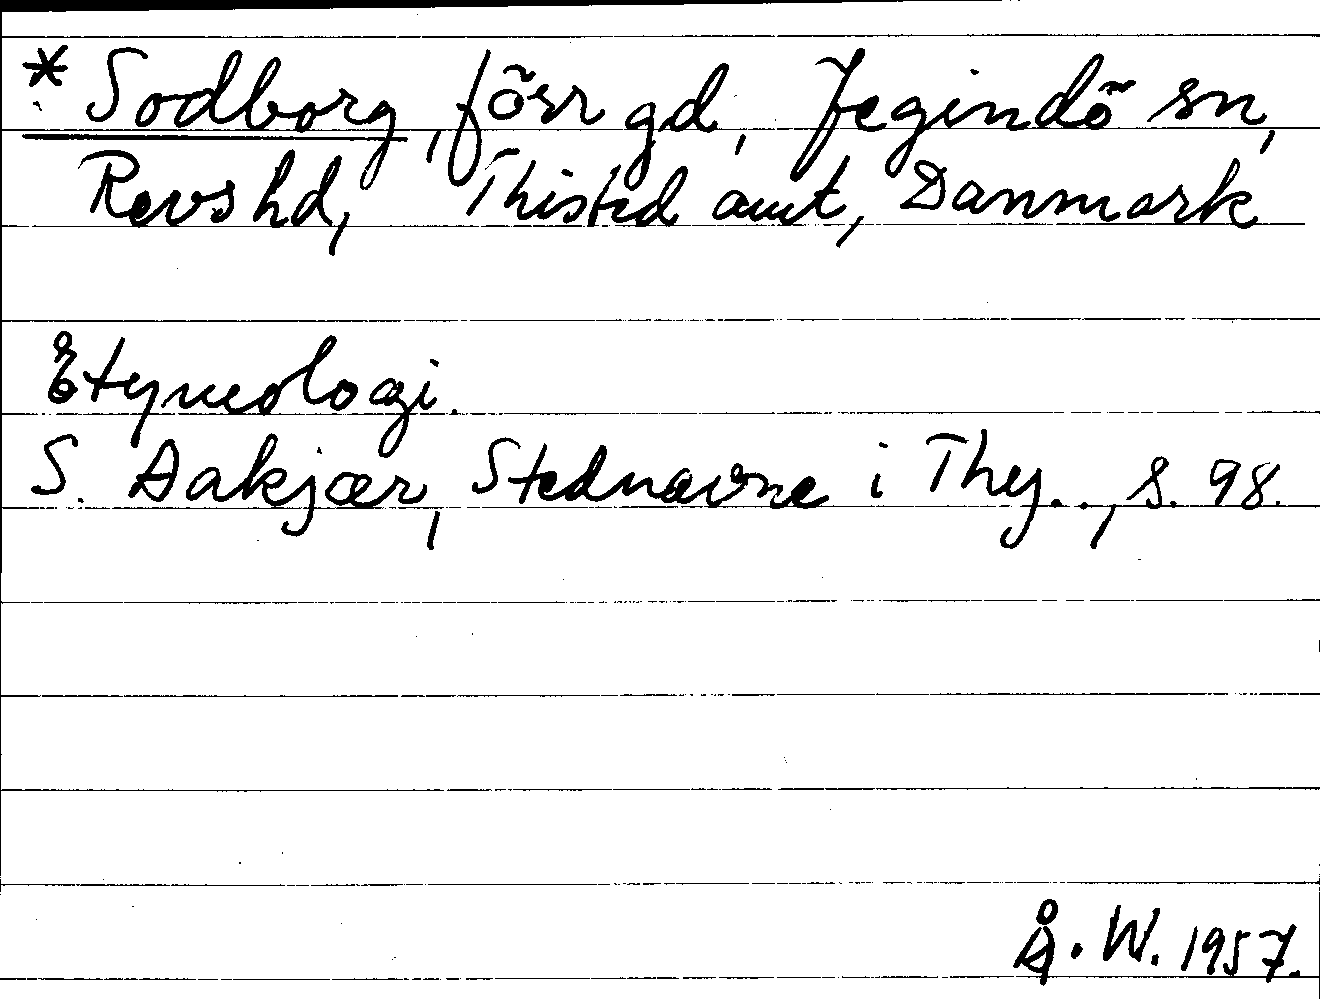 * Sodborg, förr gd, Jegindö sn,
Revs hd, Thisted amt, Danmark
Etymologi.
S. Aakjær, Stednavne i Thy.., s. 98.
Å. W. 1957.